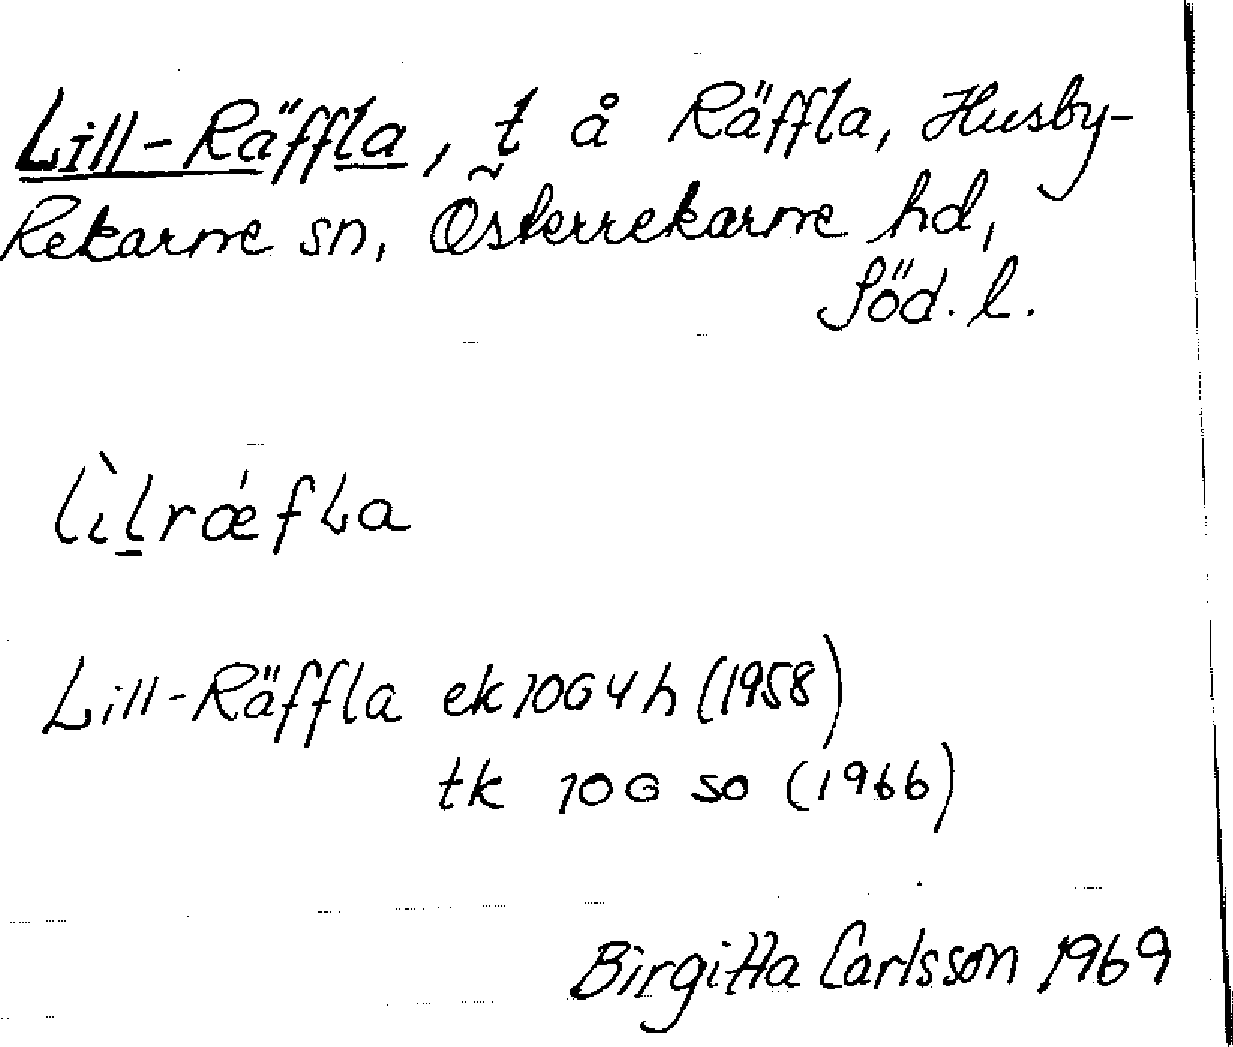 Lill-Räffla, t å Räffla, Husby-
Rekarne sn, Österrekarne hd,
Söd. l.
lìlrǽfla
Lill-Räffla ek 10G4h (1958)
tk 10G SO (1966)
Birgitta Carlsson 1969